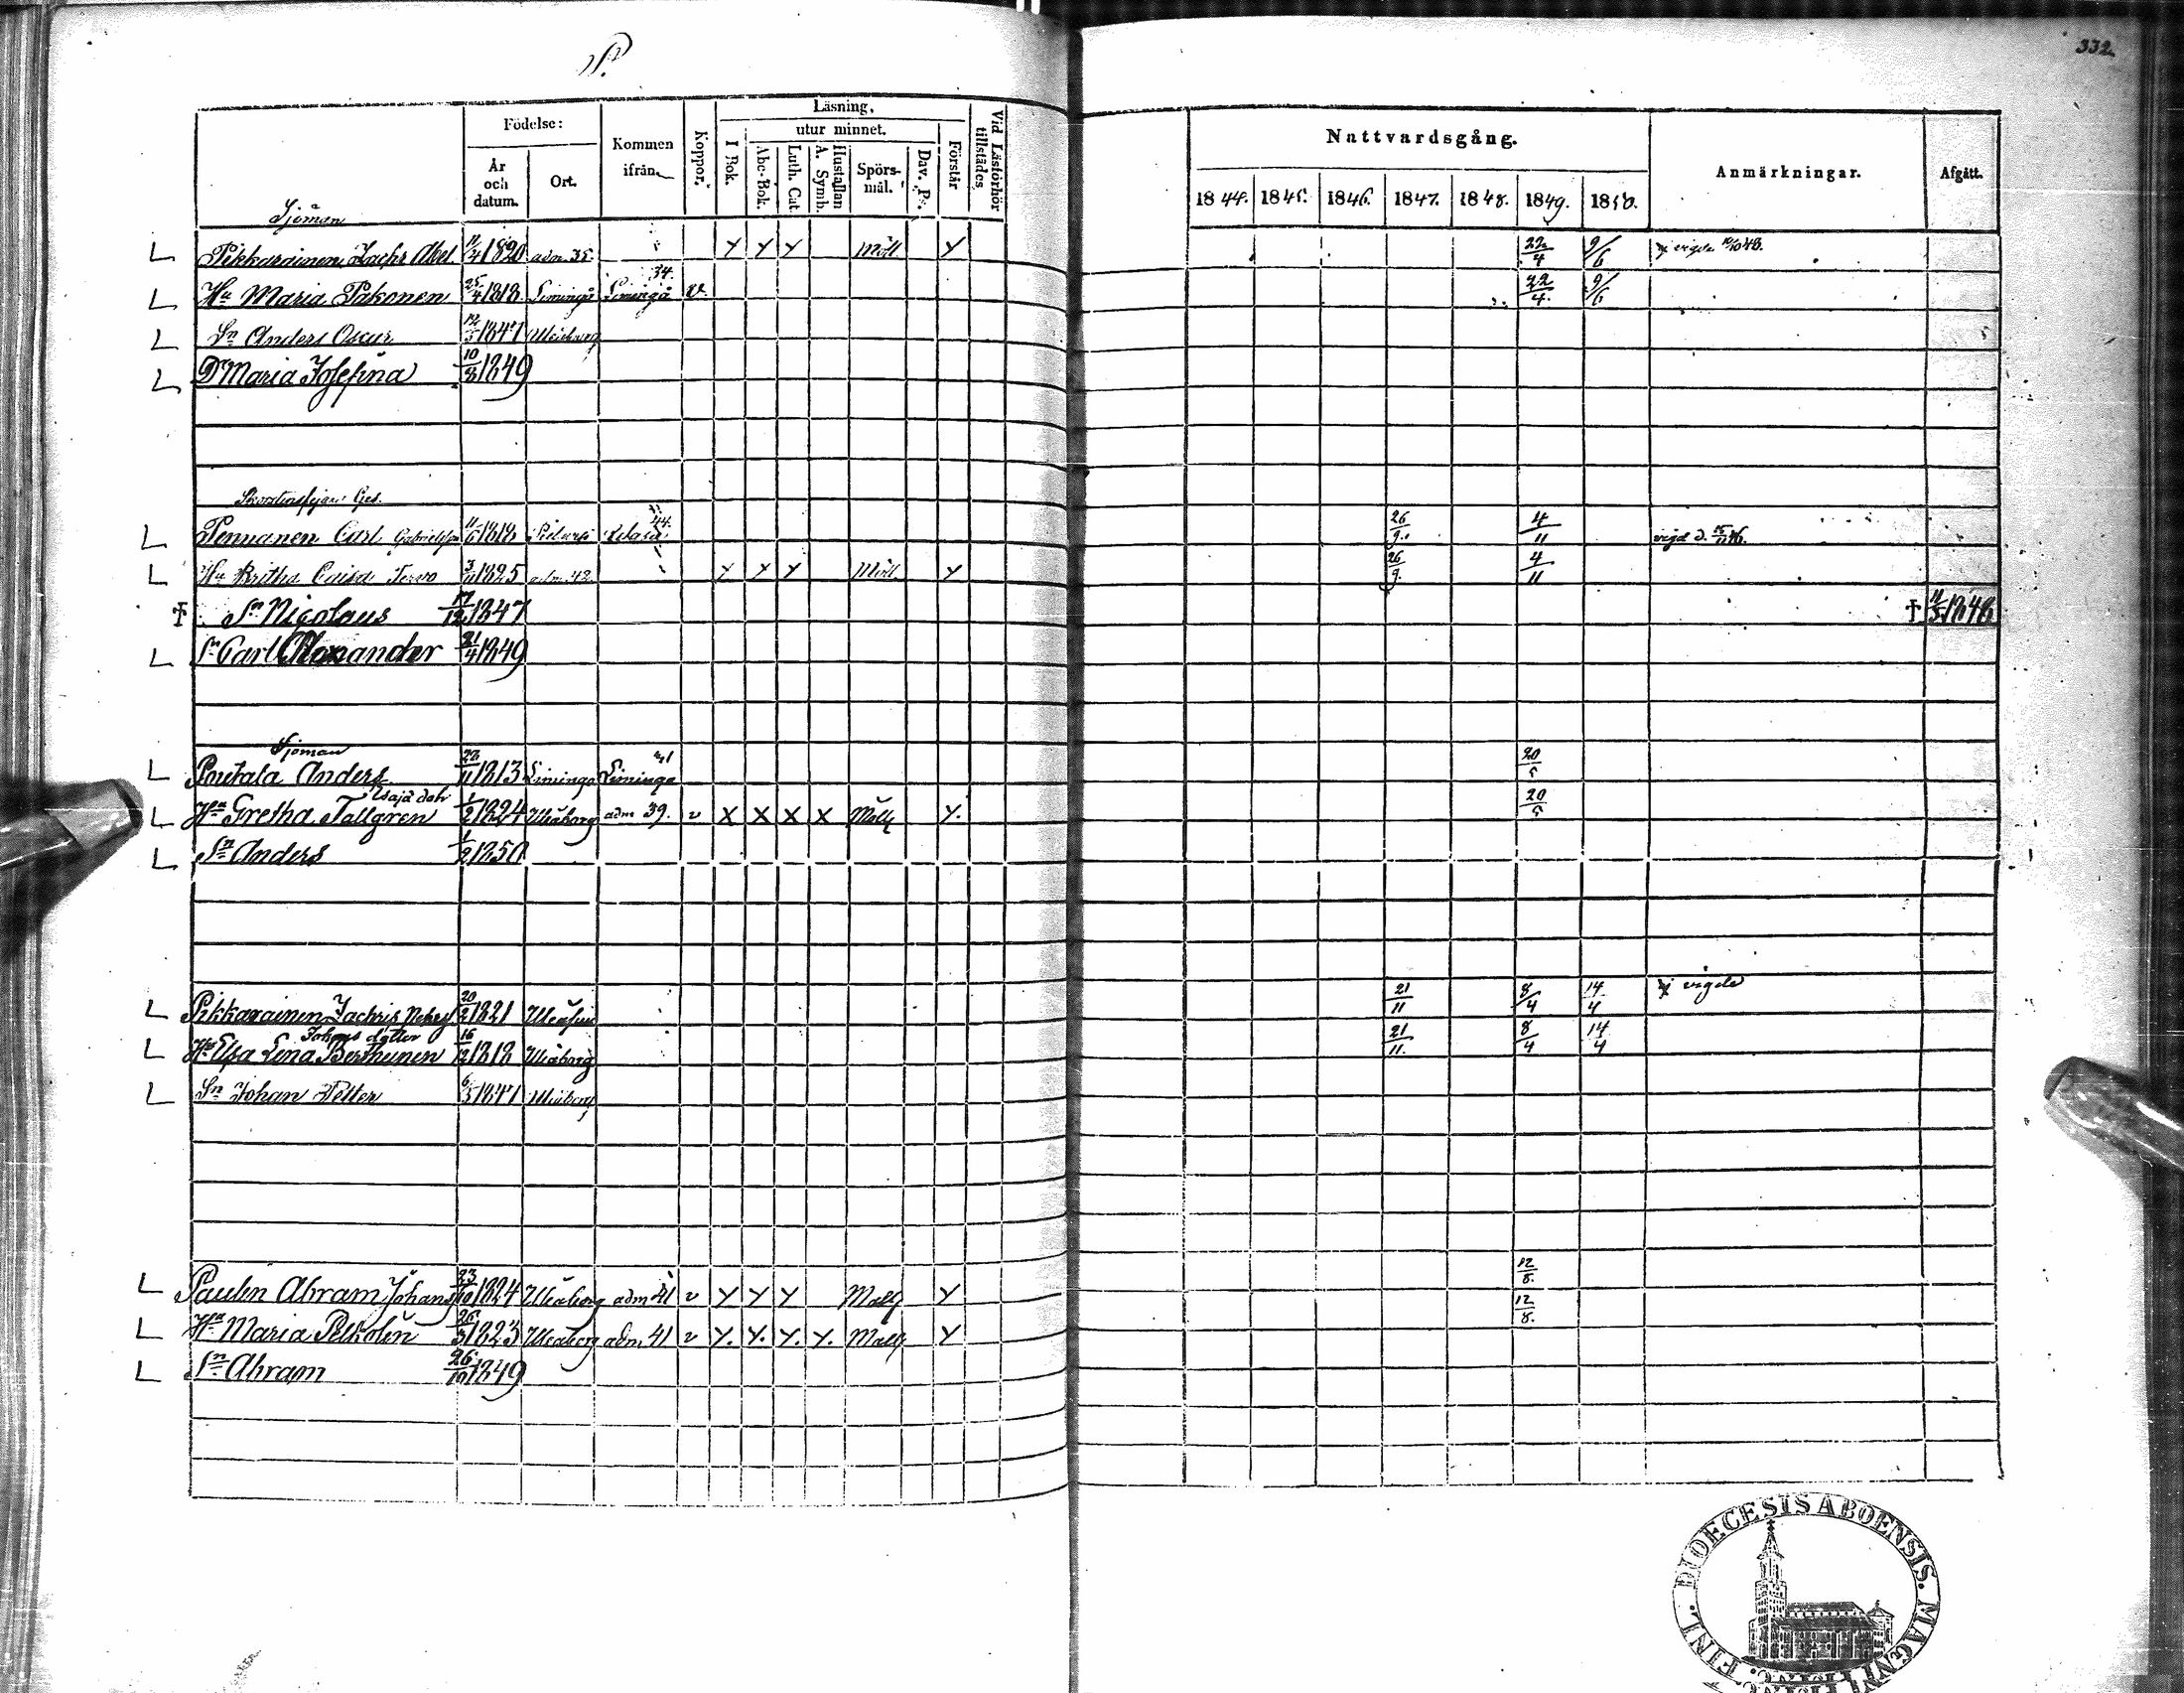 P.
332
Födelse:
Kommen ifrån.
Koppor.
Läsning.
utur minnet.
År och datum.
Ort.
I Bok.
Abc-Bok.
Luth. Cat.
Hustaflan A. Symb.
Spörsmål.
Dav. Ps.
Förstår
Vid Läsförhör tillstädes
Nattvardsgång.
1844. 1845. 1846. 1847. 1848. 1849. 1850.
Anmärkningar.
Afgått.
Sjöman
Pikkarainen Zachr Abel 11/4 1820 adm. 35. Y Y Y Möll Y 22/4 9/6 vigde
Hu Maria Pakonen 25/4 1818 Limingo Limingå 34. v. 22/4. 9/6
Sn Anders Oscar 12/5 1847 Uleåborg
Dr Maria Josefina 10/8 1849
Skorstensfejare Ges.
Pennanen Carl Gabrielsson 1818 44. 26/9. 4/11 vigd d.
Hu Britha Caisa Tervo 1825 adm. 42 Y Y Y Möll Y 26/9. 4/11
Sn Nicolaus 17/12 1847 † 1848
Sn Carl Alexander 21/4 1849
Sjöman
Poutala Anders 1813 Limingo Limingo 41 20/5
Hu Gretha Tallgren 1/2 1824 Uleåborg adm 39. v X X X X Möll Y. 20/5
Sn Anders 1/2 1850
Pikkarainen Zachris 20/2 1821 21/11 8/4 14/4 vigde
Johans dotter
Hu Elsa Lena Berthunen 16/12 1818 Uleåborg 21/11. 8/4 14/4
Sn Johan Petter 6/5 1847 Uleåborg
Paulin Abram Johans 23/10 1824 Uleåborg adm 41 v Y Y Y Mall Y 12/8.
Hu Maria Pelkolin 26/3 1823 Uleåborg adm. 41 v Y. Y. Y. Y. Mall Y 12/8.
Sn Abram 26/10 1849
DIOECESIS ABOENSIS. MAGNI
FINL.